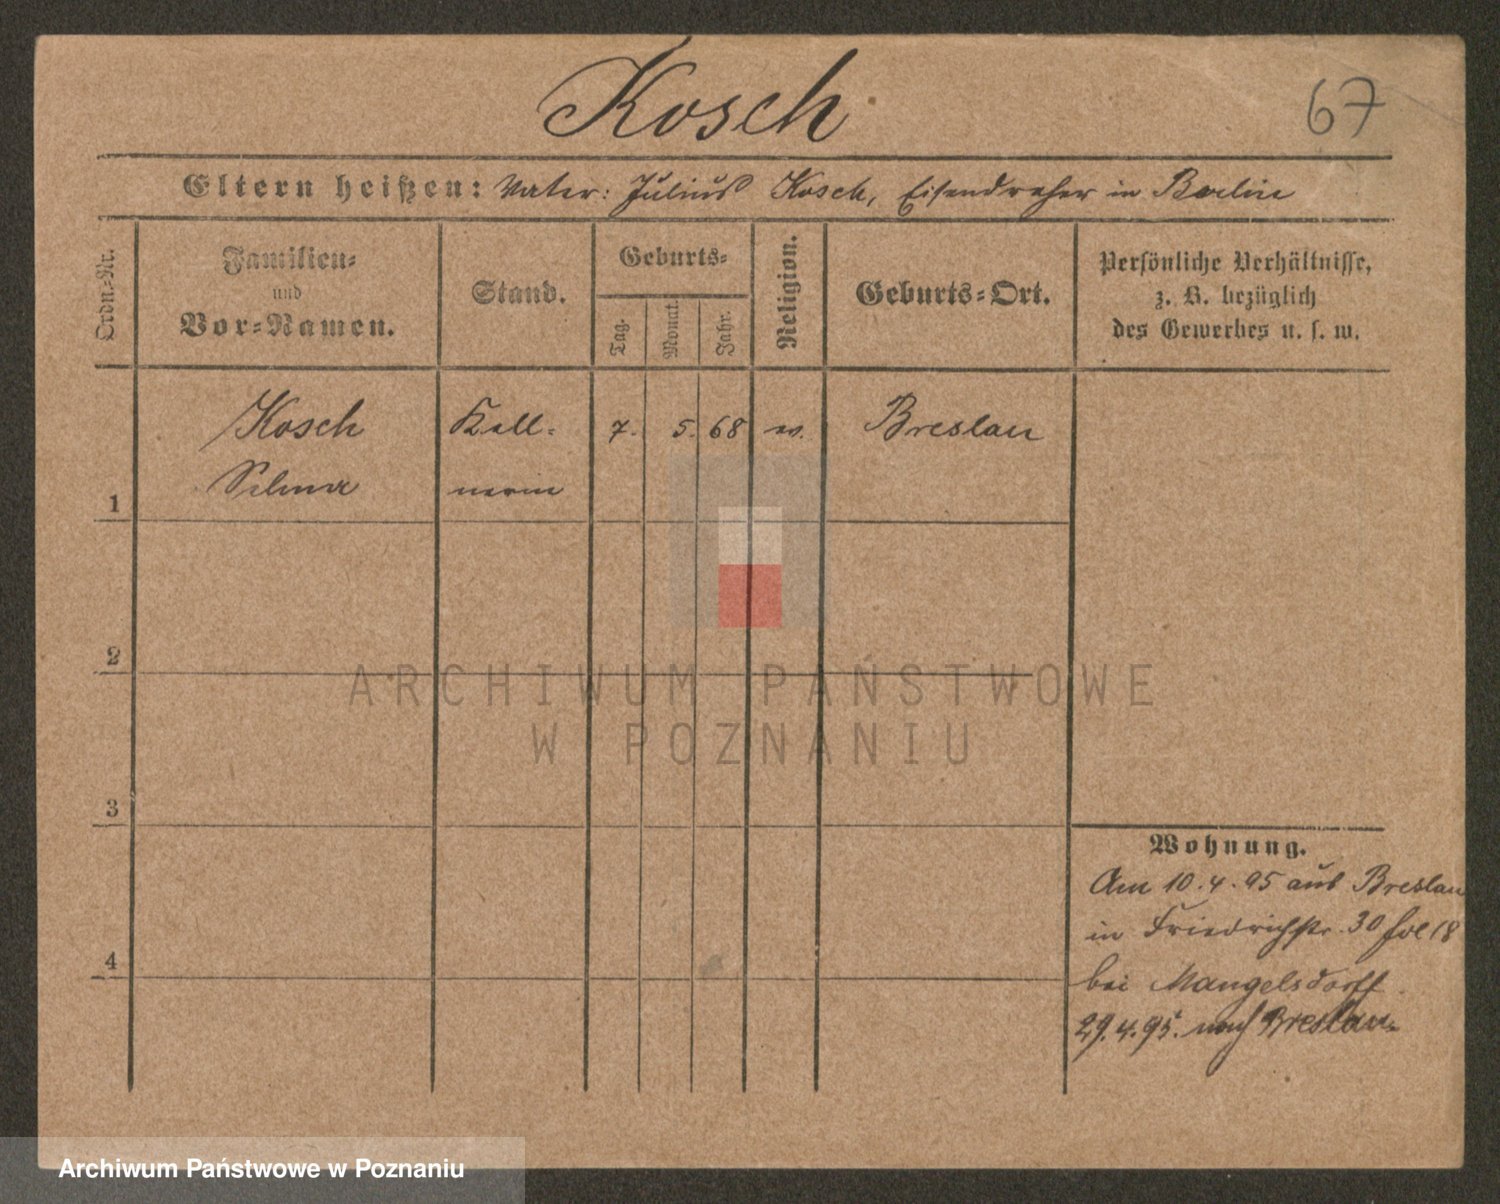 Kosch
67
Eltern heißen: Vater: Julius Kosch, Eisendreher in Berlin
Ordn.-Nr.
Familien-
und
Vor-Namen.
Stand.
Geburts-
Tag.
Monat.
Jahr.
Religion.
Geburts-Ort.
Persönliche Verhältnisse,
z. B. bezüglich
des Gewerbes u. s. w.
Kosch Kell- 7. 5. 68 ev. Breslau
Selma nerin
1
2
ARCHIWUM PAŃSTWOWE
W POZNANIU
3
Wohnung.
Am 10.4.95 aus Breslau
in Friedrichstr. 30 fol 18
4
bei Mangelsdorff.
29.4.95. nach Breslau
Archiwum Państwowe w Poznaniu